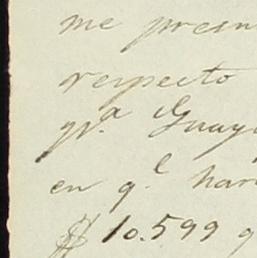 me presen
respecto
pª. Guaya
en q.l har
$ 10.599 q